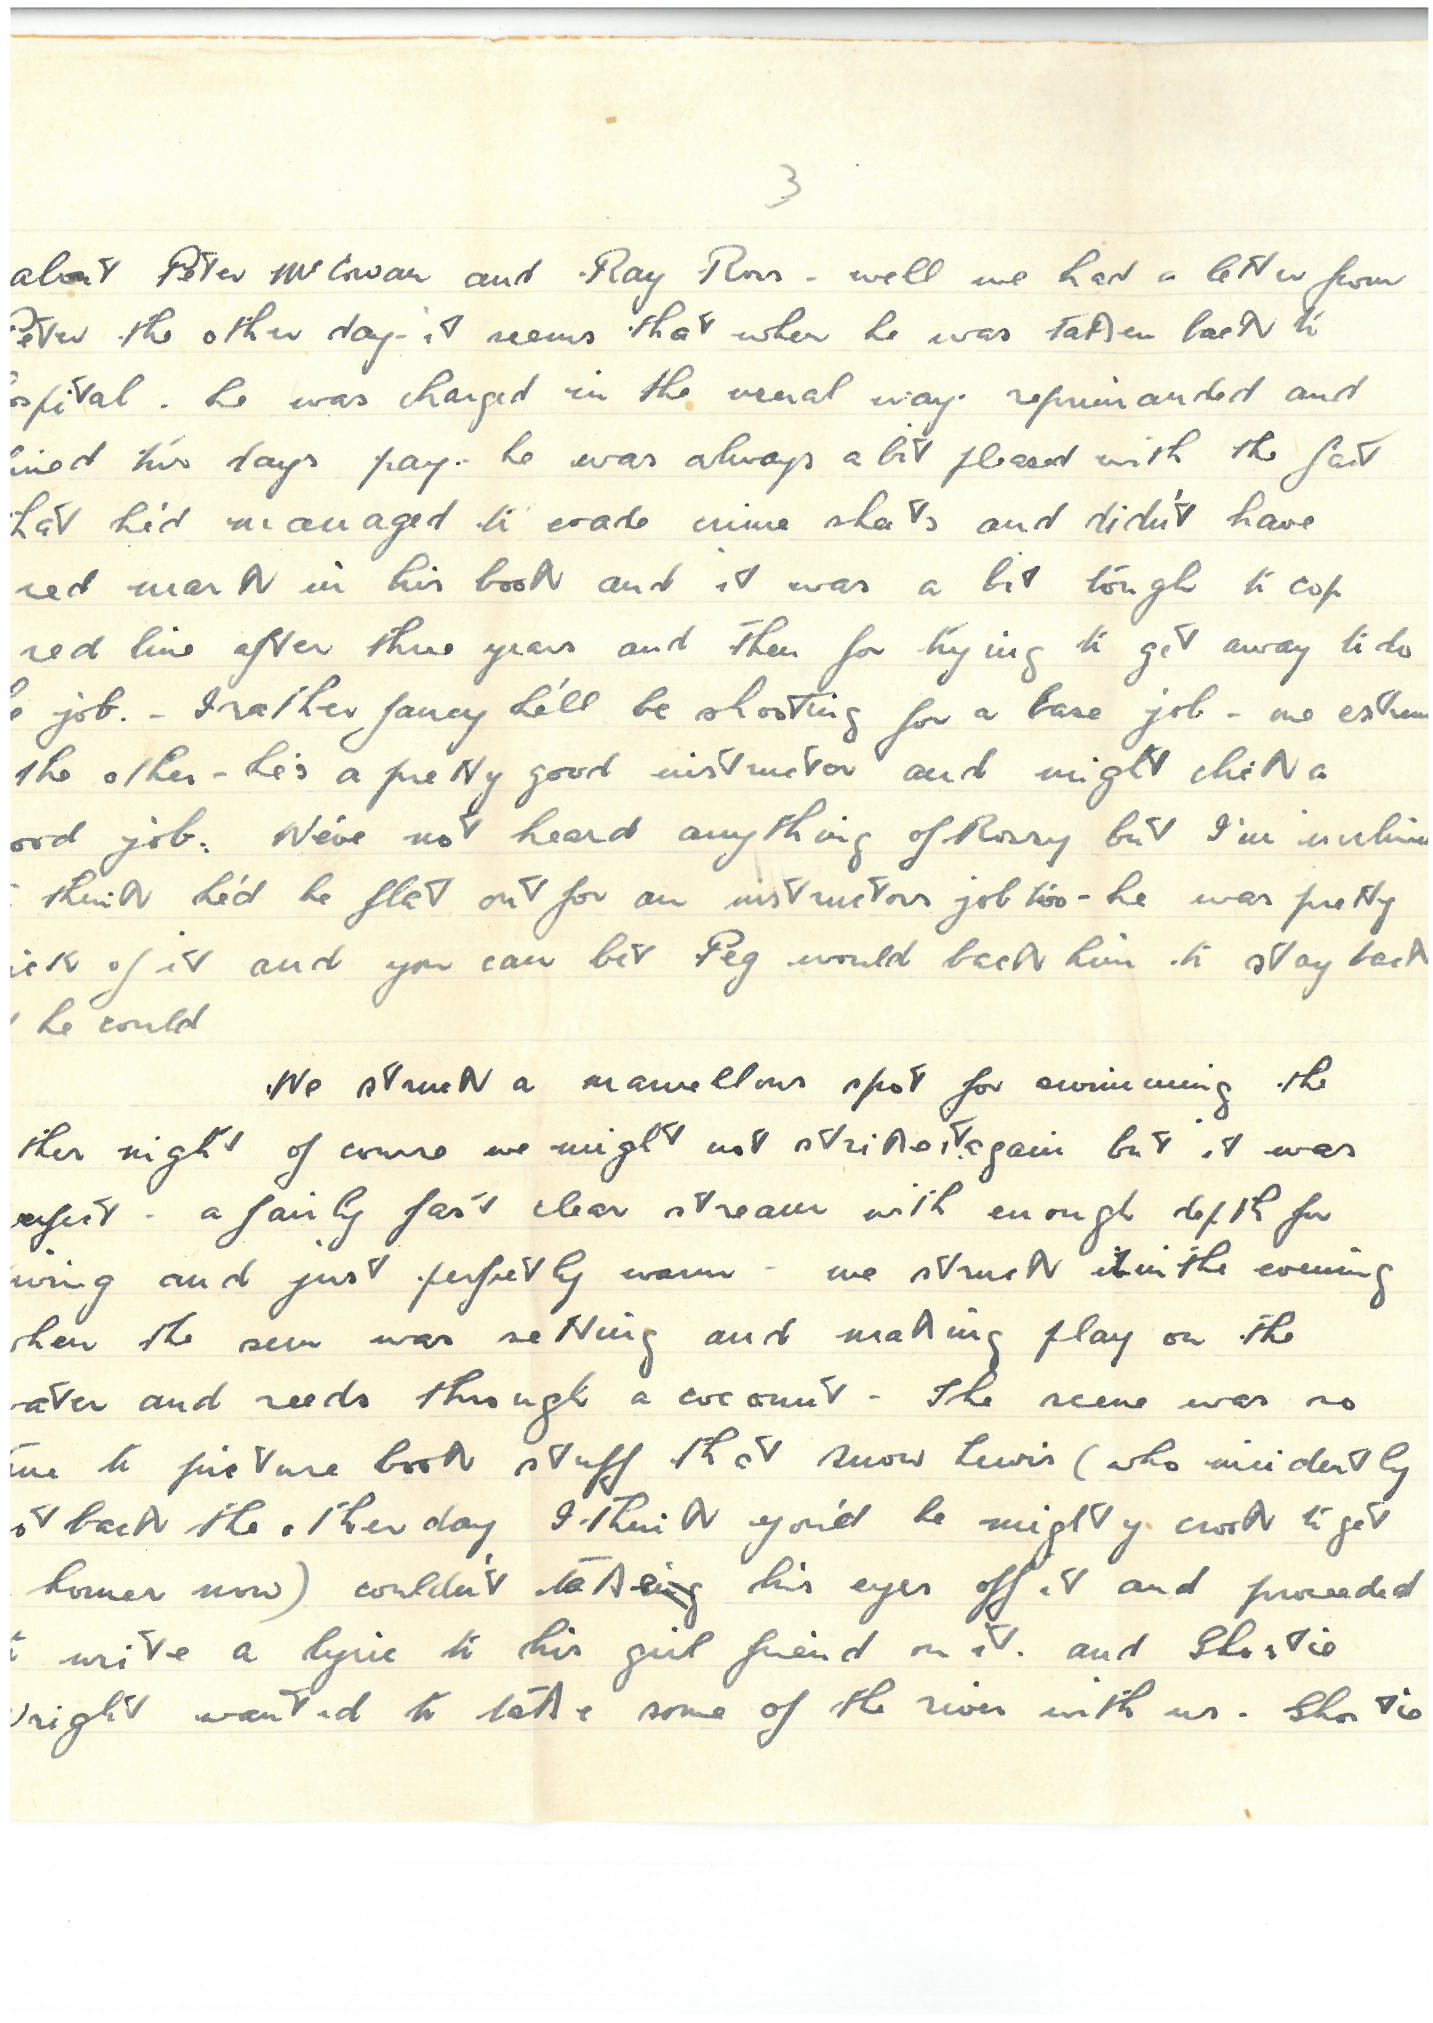 3
about Peter McCowan and Ray Ross - well we had a letter from
Peter the other day - it seems that when he was taken back to
ospital - he was charged in the usual way - reprimanded and
ined two days pay - he was always a bit pleased with the fact
that he'd managed to evade crime sheets and didn't have
red mark in his book and it was a bit tough to cop
red line after three years and then for trying to get away to do
e job. - I rather fancy he'll be shooting for a base job - one extrem
the other - he's a pretty good instructor and might click a
ood job. We've not heard anything of Rossy but I'm inclin
think he'd be flat out for an instructors job too - he was pretty
ick of it and you can bet Peg would back him to stay back
he could
We struck a marvellous spot for swimming the
ther night of course we might not strike it again but it was
erfect - a fairly fast clear stream with enough depth for
iving and just perfectly warm - we struck it in the evening
when the sun was setting and making play on the
water and reeds through a coconut - The scene was so
rue to picture book stuff that Snow Lewis (who incidently
ot back the other day I think you'd be mighty crook to get
homer now) couldn't take his eyes off it and proceeded
write a lyric to his girl friend on it. and Shortie
Wright wanted to take some of the river with us - Shortie